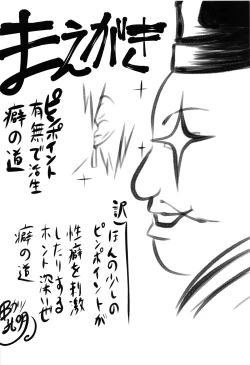 まえがき
ピンポイント
有無で活生
癖の道
訳)ほんの少しの
ピンポイントが
性癖を刺激
したりする
ホント深いぜ
癖の道